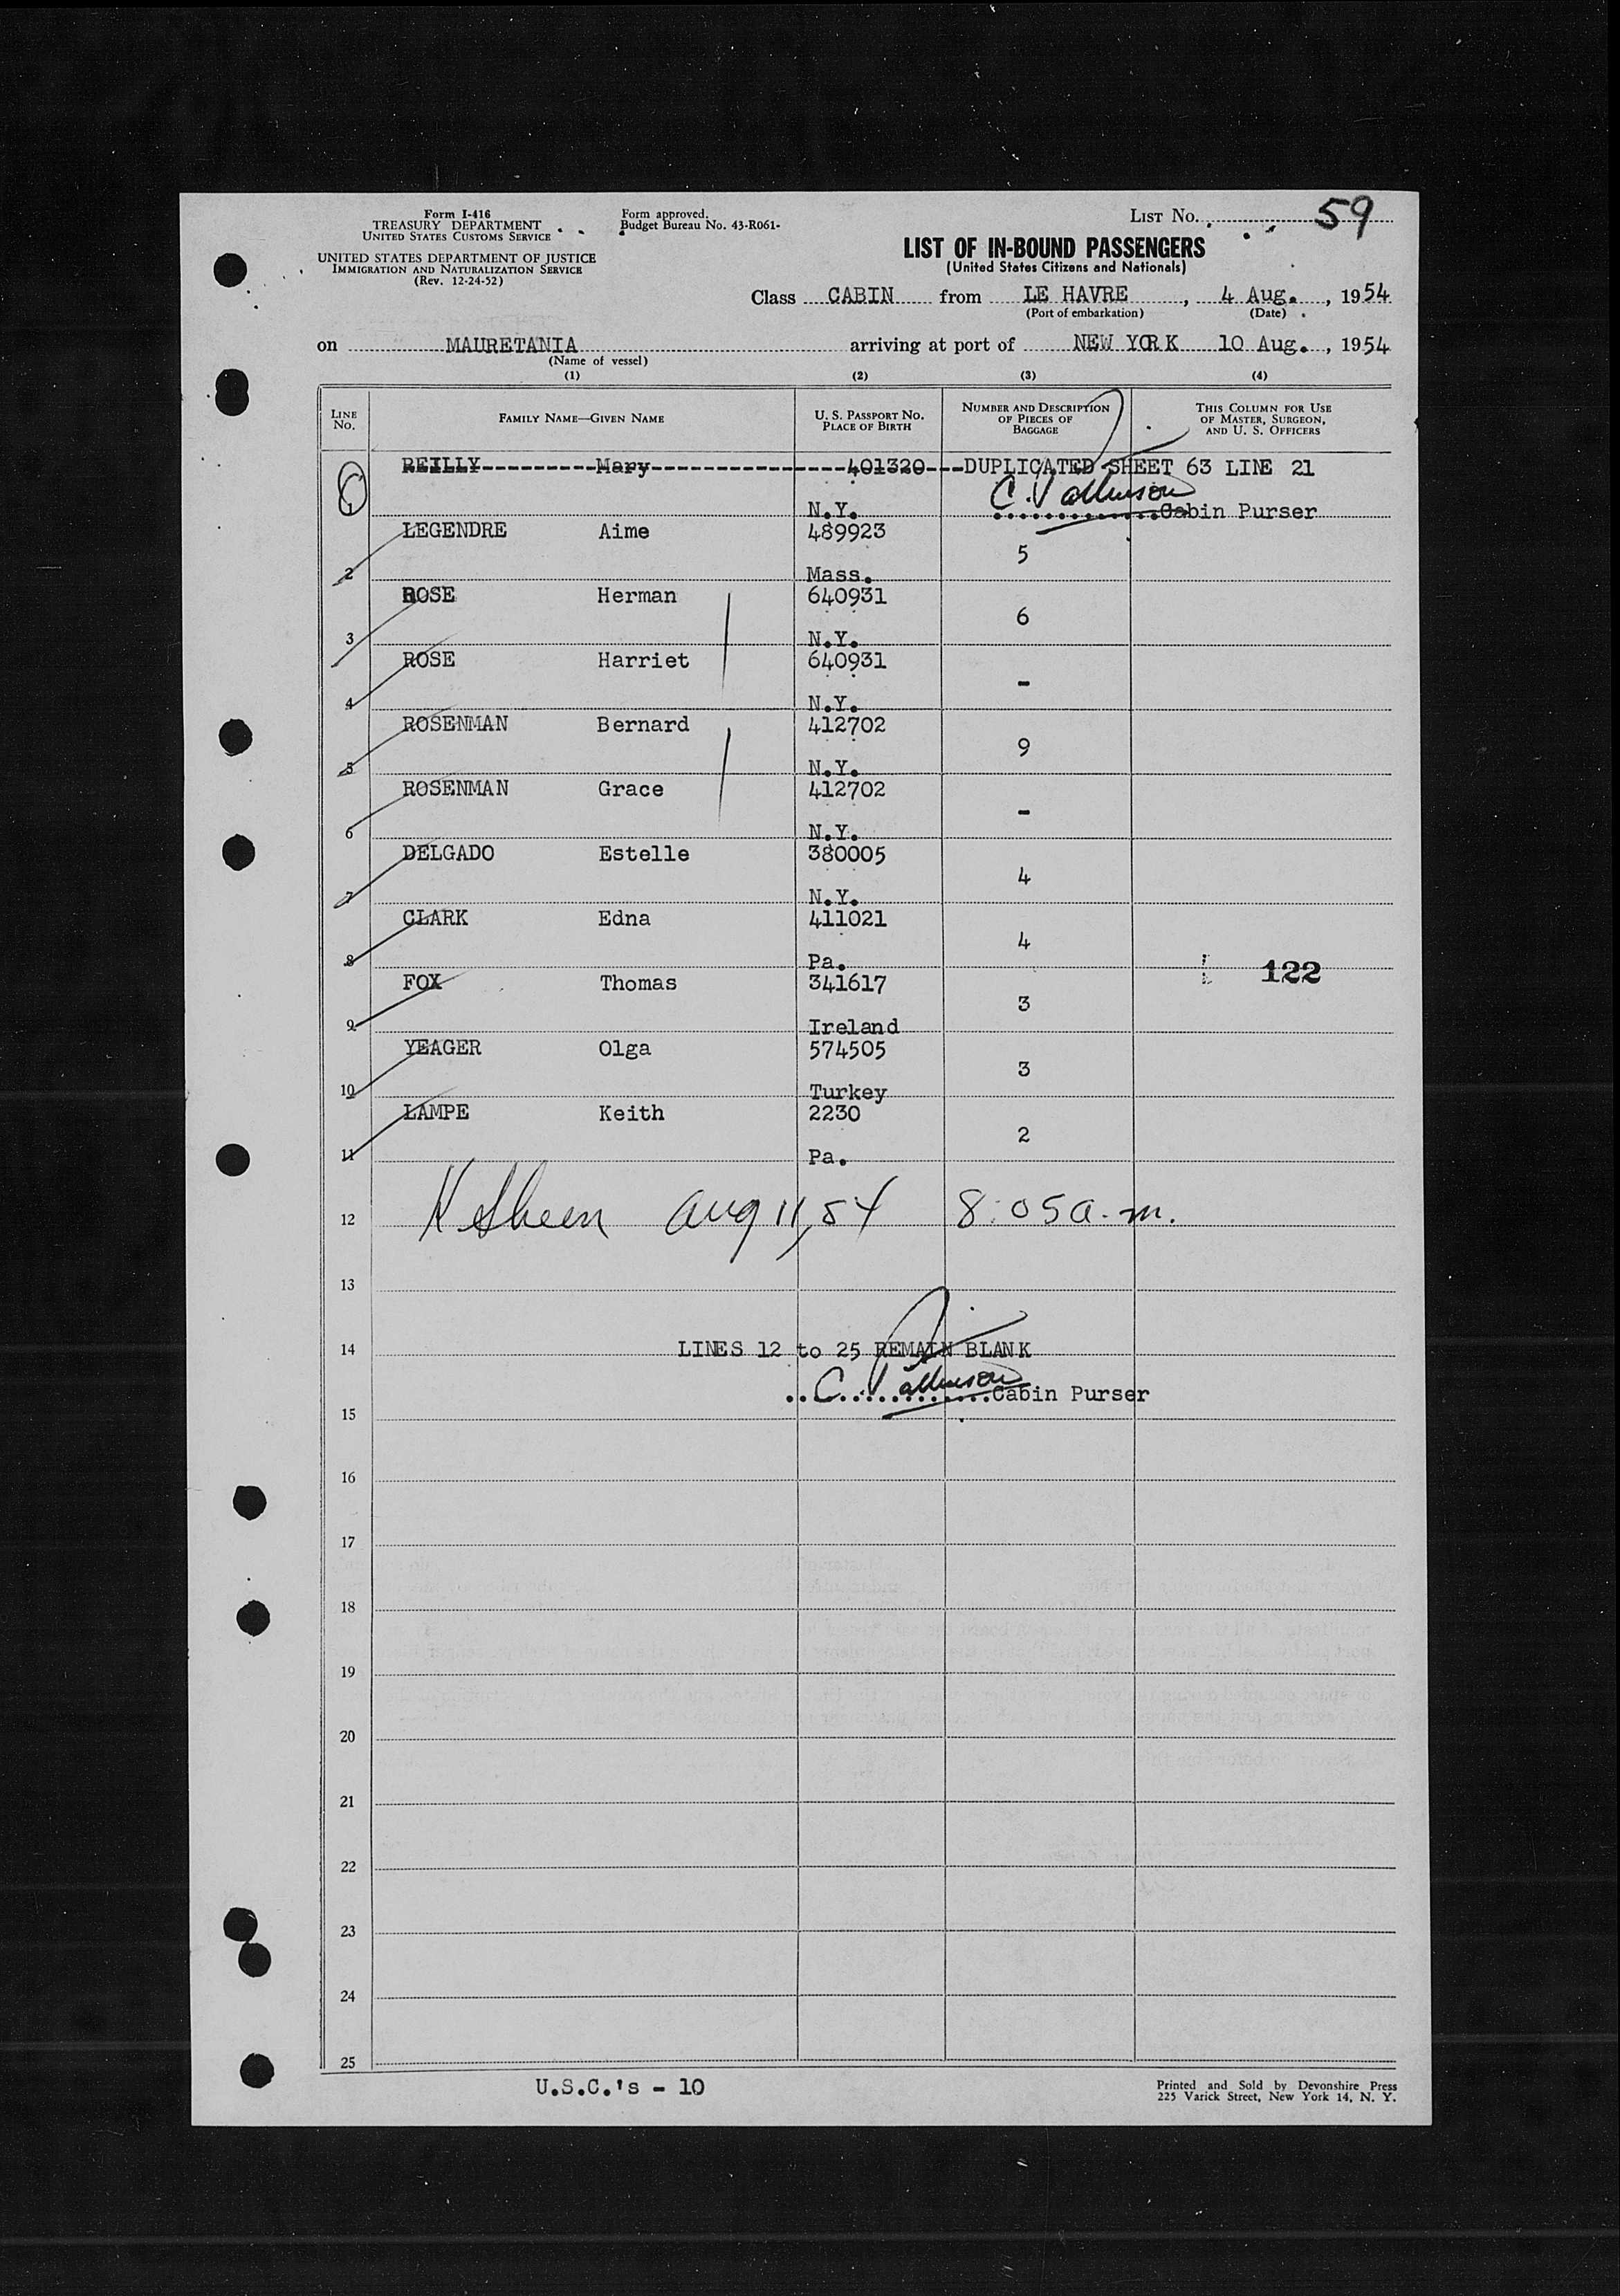 Form I-416
TREASURY DEPARTMENT
UNITED STATES CUSTOMS SERVICE
UNITED STATES DEPARTMENT OF JUSTICE
IMMIGRATION AND NATURALIZATION SERVICE
(Rev. 12-24-52)
Form approved.
Budget Bureau No. 43-R061-
LIST NO. 59
LIST OF IN-BOUND PASSENGERS
(United States Citizens and Nationals)
Class CABIN from LE HAVRE, 4 Aug., 1954
(Port of embarkation) (Date)
on MAURETANIA arriving at port of NEW YORK 10 Aug., 1954
(Name of vessel)
(1) (2) (3) (4)
LINE NO. FAMILY NAME—GIVEN NAME U. S. PASSPORT NO. PLACE OF BIRTH NUMBER AND DESCRIPTION OF PIECES OF BAGGAGE THIS COLUMN FOR USE OF MASTER, SURGEON, AND U. S. OFFICERS
REILLY----------Mary------------------401320---DUPLICATED SHEET 63 LINE 21
1 N.Y. Cabin Purser
LEGENDRE Aime 489923
5
2 Mass.
ROSE Herman 640931
6
3 N.Y.
ROSE Harriet 640931
-
4 N.Y.
ROSENMAN Bernard 412702
9
5 N.Y.
ROSENMAN Grace 412702
-
6 N.Y.
DELGADO Estelle 380005
4
7 N.Y.
CLARK Edna 411021
4
8 Pa. 122
FOX Thomas 341617
3
9 Ireland
YEAGER Olga 574505
3
10 Turkey
LAMPE Keith 2230
2
11 Pa.
12 Aug 11, 54 8:05 a.m.
13
14 LINES 12 to 25 REMAIN BLANK
Cabin Purser
15
16
17
18
19
20
21
22
23
24
25
U.S.C.'s - 10
Printed and Sold by Devonshire Press
225 Varick Street, New York 14, N. Y.